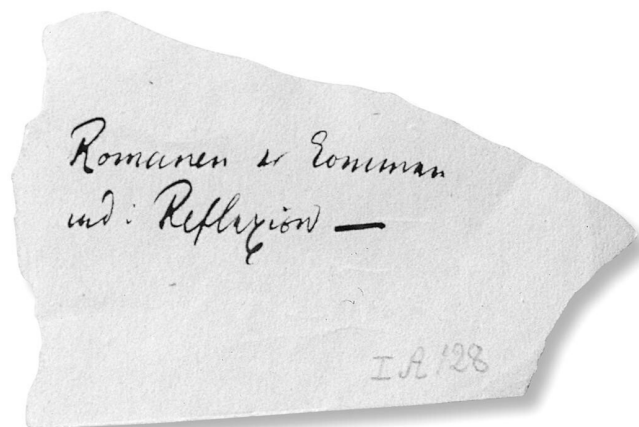 Romanen er kommen
ind i Reflexion —
I A 128